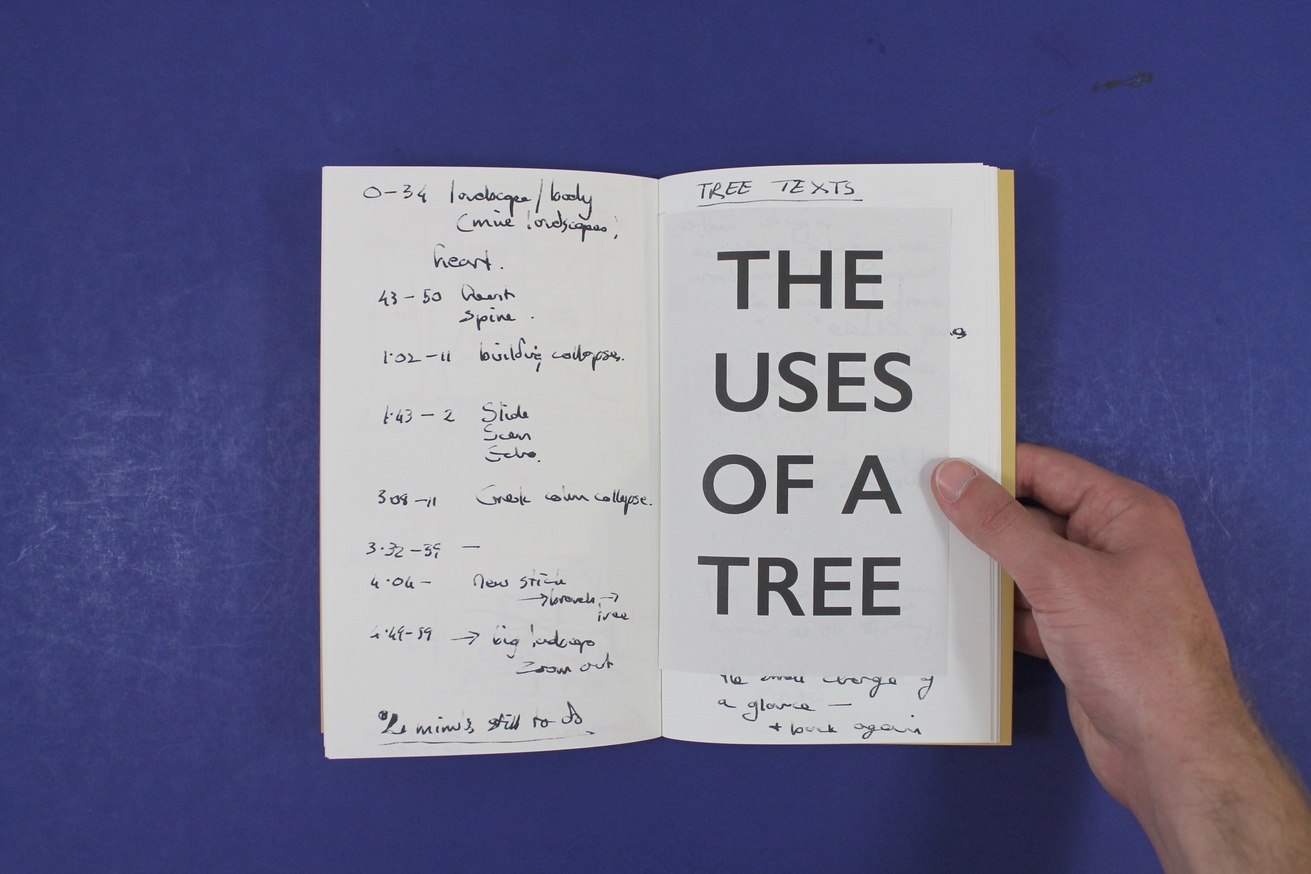 0-34 landscape/body
(mine landscapes,
heart.
43-50 Heart
Spine.
1.02-11 building collapses.
1.43-2 Slide
Scan
Echo.
3 08-11 Greek column collapse.
3.32-39 —
4.04- New stick
→ branch →
tree
4.49-59 → big landscape
zoom out
2 mins still to do
TREE TEXTS
THE
USES
OF A
TREE
the small change of
a glance —
+ back again